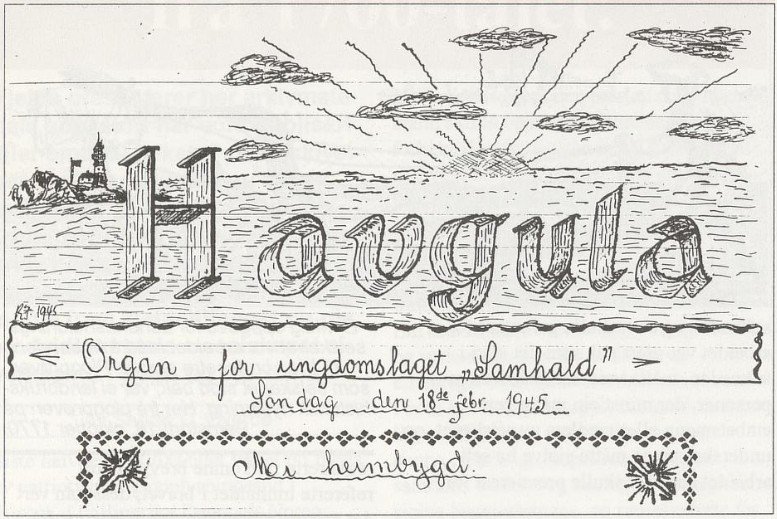 Havgula
1945
Organ for ungdomslaget „Samhald”
Søndag den 18de febr. 1945
Mi heimbygd.